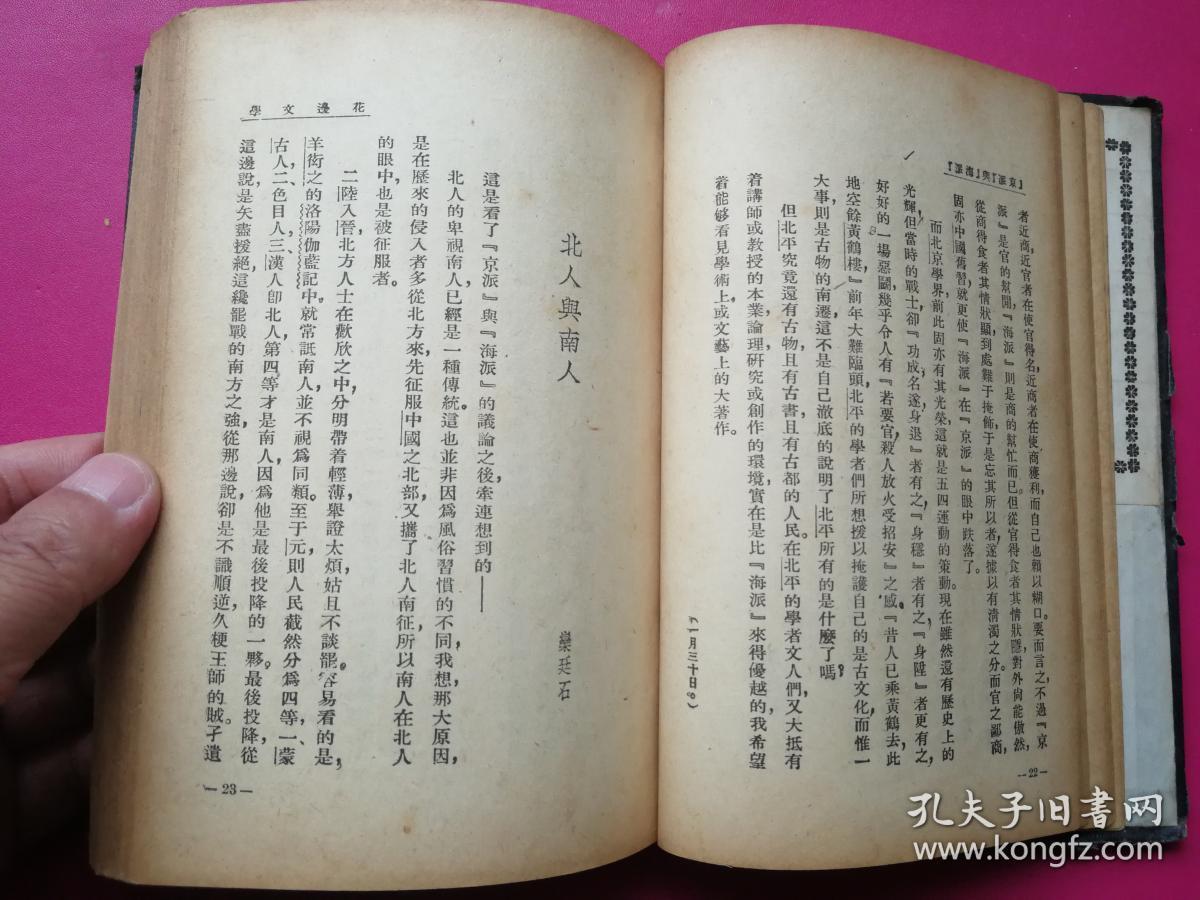 『京派』與『海派』
者近商，近官者在使官得名，近商者在使商獲利，而自己也賴以糊口。要而言之，不過『京
派』是官的幫閒，『海派』則是商的幫忙而已。但從官得食者其情狀隱，對外尙能傲然，
從商得食者其情狀顯，到處難于掩飾，于是忘其所以者，遂據以有清濁之分。而官之鄙商，
固亦中國舊習，就更使『海派』在『京派』的眼中跌落了。
而北京學界，前此固亦有其光榮，這就是五四運動的策動。現在雖然還有歷史上的
光輝，但當時的戰士，卻『功成，名遂，身退』者有之，『身穩』者有之，『身陞』者更有之，
好好的一場惡鬭，幾乎令人有『若要官，殺人放火受招安』之感。『昔人已乘黃鶴去，此
地空餘黃鶴樓，』前年大難臨頭，北平的學者們所想援以掩護自己的是古文化，而惟一
大事，則是古物的南遷，這不是自己澈底的說明了北平所有的是什麼了嗎？
但北平究竟還有古物，且有古書，且有古都的人民。在北平的學者文人們，又大抵有
着講師或教授的本業，論理，研究或創作的環境，實在是比『海派』來得優越的，我希望
着能够看見學術上，或文藝上的大著作。
（一月三十日。）
—22—
花邊文學
北人與南人
欒廷石
這是看了『京派』與『海派』的議論之後，牽連想到的——
北人的卑視南人，已經是一種傳統。這也並非因爲風俗習慣的不同，我想，那大原因，
是在歷來的侵入者多從北方來，先征服中國之北部，又攜了北人南征，所以南人在北人
的眼中，也是被征服者。
二陸入晉，北方人士在歡欣之中，分明帶着輕薄，舉證太煩，姑且不談罷。容易看的是，
羊衒之的洛陽伽藍記中，就常詆南人，並不視爲同類。至于元，則人民截然分爲四等，一蒙
古人，二色目人，三漢人卽北人，第四等才是南人，因爲他是最後投降的一夥。最後投降，從
這邊說，是矢盡援絕，這纔罷戰的南方之強，從那邊說，卻是不識順逆，久梗王師的賊。孑遺
—23—
孔夫子旧书网
www.kongfz.com